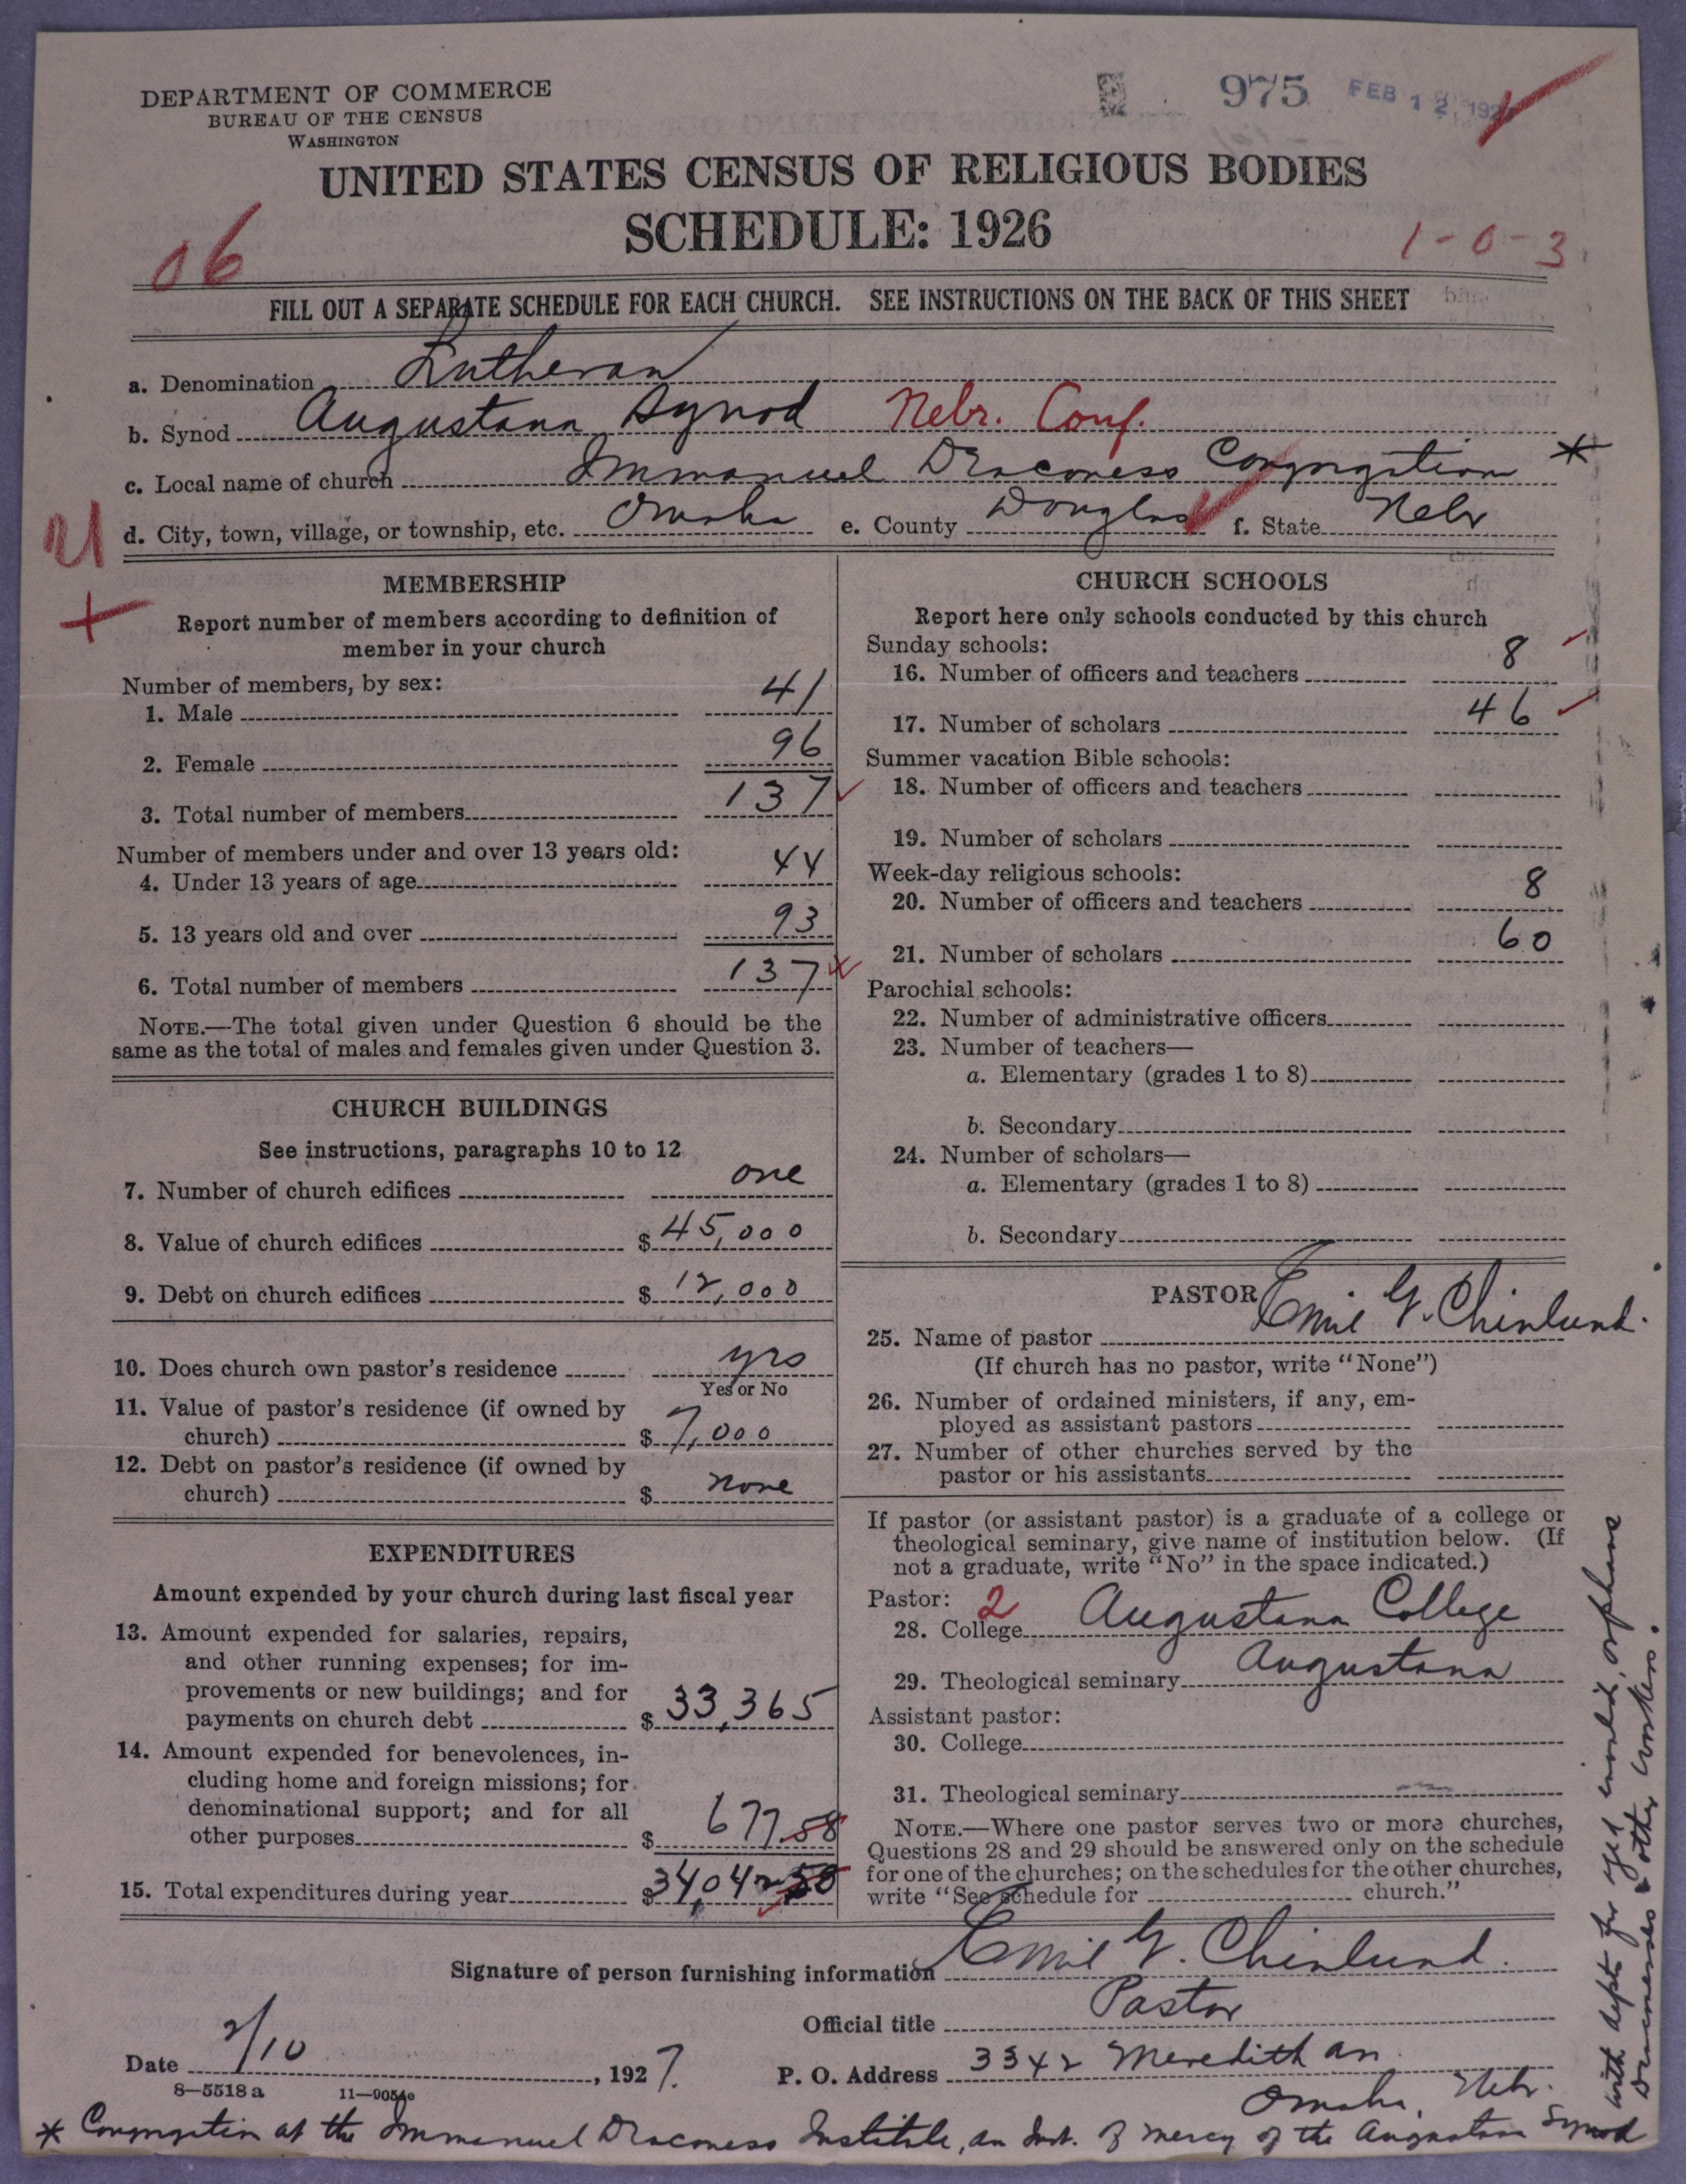 DEPARTMENT OF COMMERCE
BUREAU OF THE CENSUS
WASHINGTON
975 FEB 12 192
UNITED STATES CENSUS OF RELIGIOUS BODIES
SCHEDULE: 1926
06
1-0-3
FILL OUT A SEPARATE SCHEDULE FOR EACH CHURCH. SEE INSTRUCTIONS ON THE BACK OF THIS SHEET
a. Denomination Lutheran
b. Synod Augustana Synod Nebr. Conf.
c. Local name of church Immanuel Deaconess Congregation *
d. City, town, village, or township, etc. Omaha e. County Douglas f. State Nebr
MEMBERSHIP
Report number of members according to definition of
member in your church
Number of members, by sex:
1. Male 41
2. Female 96
3. Total number of members 137
Number of members under and over 13 years old:
4. Under 13 years of age 44
5. 13 years old and over 93
6. Total number of members 137
NOTE.—The total given under Question 6 should be the
same as the total of males and females given under Question 3.
CHURCH BUILDINGS
See instructions, paragraphs 10 to 12
7. Number of church edifices one
8. Value of church edifices $ 45,000
9. Debt on church edifices $ 12,000
10. Does church own pastor's residence yes
Yes or No
11. Value of pastor's residence (if owned by
church) $ 7,000
12. Debt on pastor's residence (if owned by
church) $ none
EXPENDITURES
Amount expended by your church during last fiscal year
13. Amount expended for salaries, repairs,
and other running expenses; for im-
provements or new buildings; and for
payments on church debt $ 33,365
14. Amount expended for benevolences, in-
cluding home and foreign missions; for
denominational support; and for all
other purposes $ 677.58
15. Total expenditures during year $ 34,042.58
CHURCH SCHOOLS
Report here only schools conducted by this church
Sunday schools:
16. Number of officers and teachers 8
17. Number of scholars 46
Summer vacation Bible schools:
18. Number of officers and teachers
19. Number of scholars
Week-day religious schools:
20. Number of officers and teachers 8
21. Number of scholars 60
Parochial schools:
22. Number of administrative officers
23. Number of teachers—
a. Elementary (grades 1 to 8)
b. Secondary
24. Number of scholars—
a. Elementary (grades 1 to 8)
b. Secondary
PASTOR
25. Name of pastor Emil G. Chinlund.
(If church has no pastor, write "None")
26. Number of ordained ministers, if any, em-
ployed as assistant pastors
27. Number of other churches served by the
pastor or his assistants
If pastor (or assistant pastor) is a graduate of a college or
theological seminary, give name of institution below. (If
not a graduate, write "No" in the space indicated.)
Pastor: 2
28. College Augustana College
29. Theological seminary Augustana
Assistant pastor:
30. College
31. Theological seminary
NOTE.—Where one pastor serves two or more churches,
Questions 28 and 29 should be answered only on the schedule
for one of the churches; on the schedules for the other churches,
write "See schedule for church."
Signature of person furnishing information Emil G. Chinlund.
Official title Pastor
Date 2/10, 1927. P. O. Address 3342 Meredith av
Omaha, Nebr.
8—5518 a 11—9054
* Congregation at the Immanuel Deaconess Institute, an Inst. of mercy of the Augustana Synod
with depts for aged, invalid, orphans
Deaconesses & other workers.